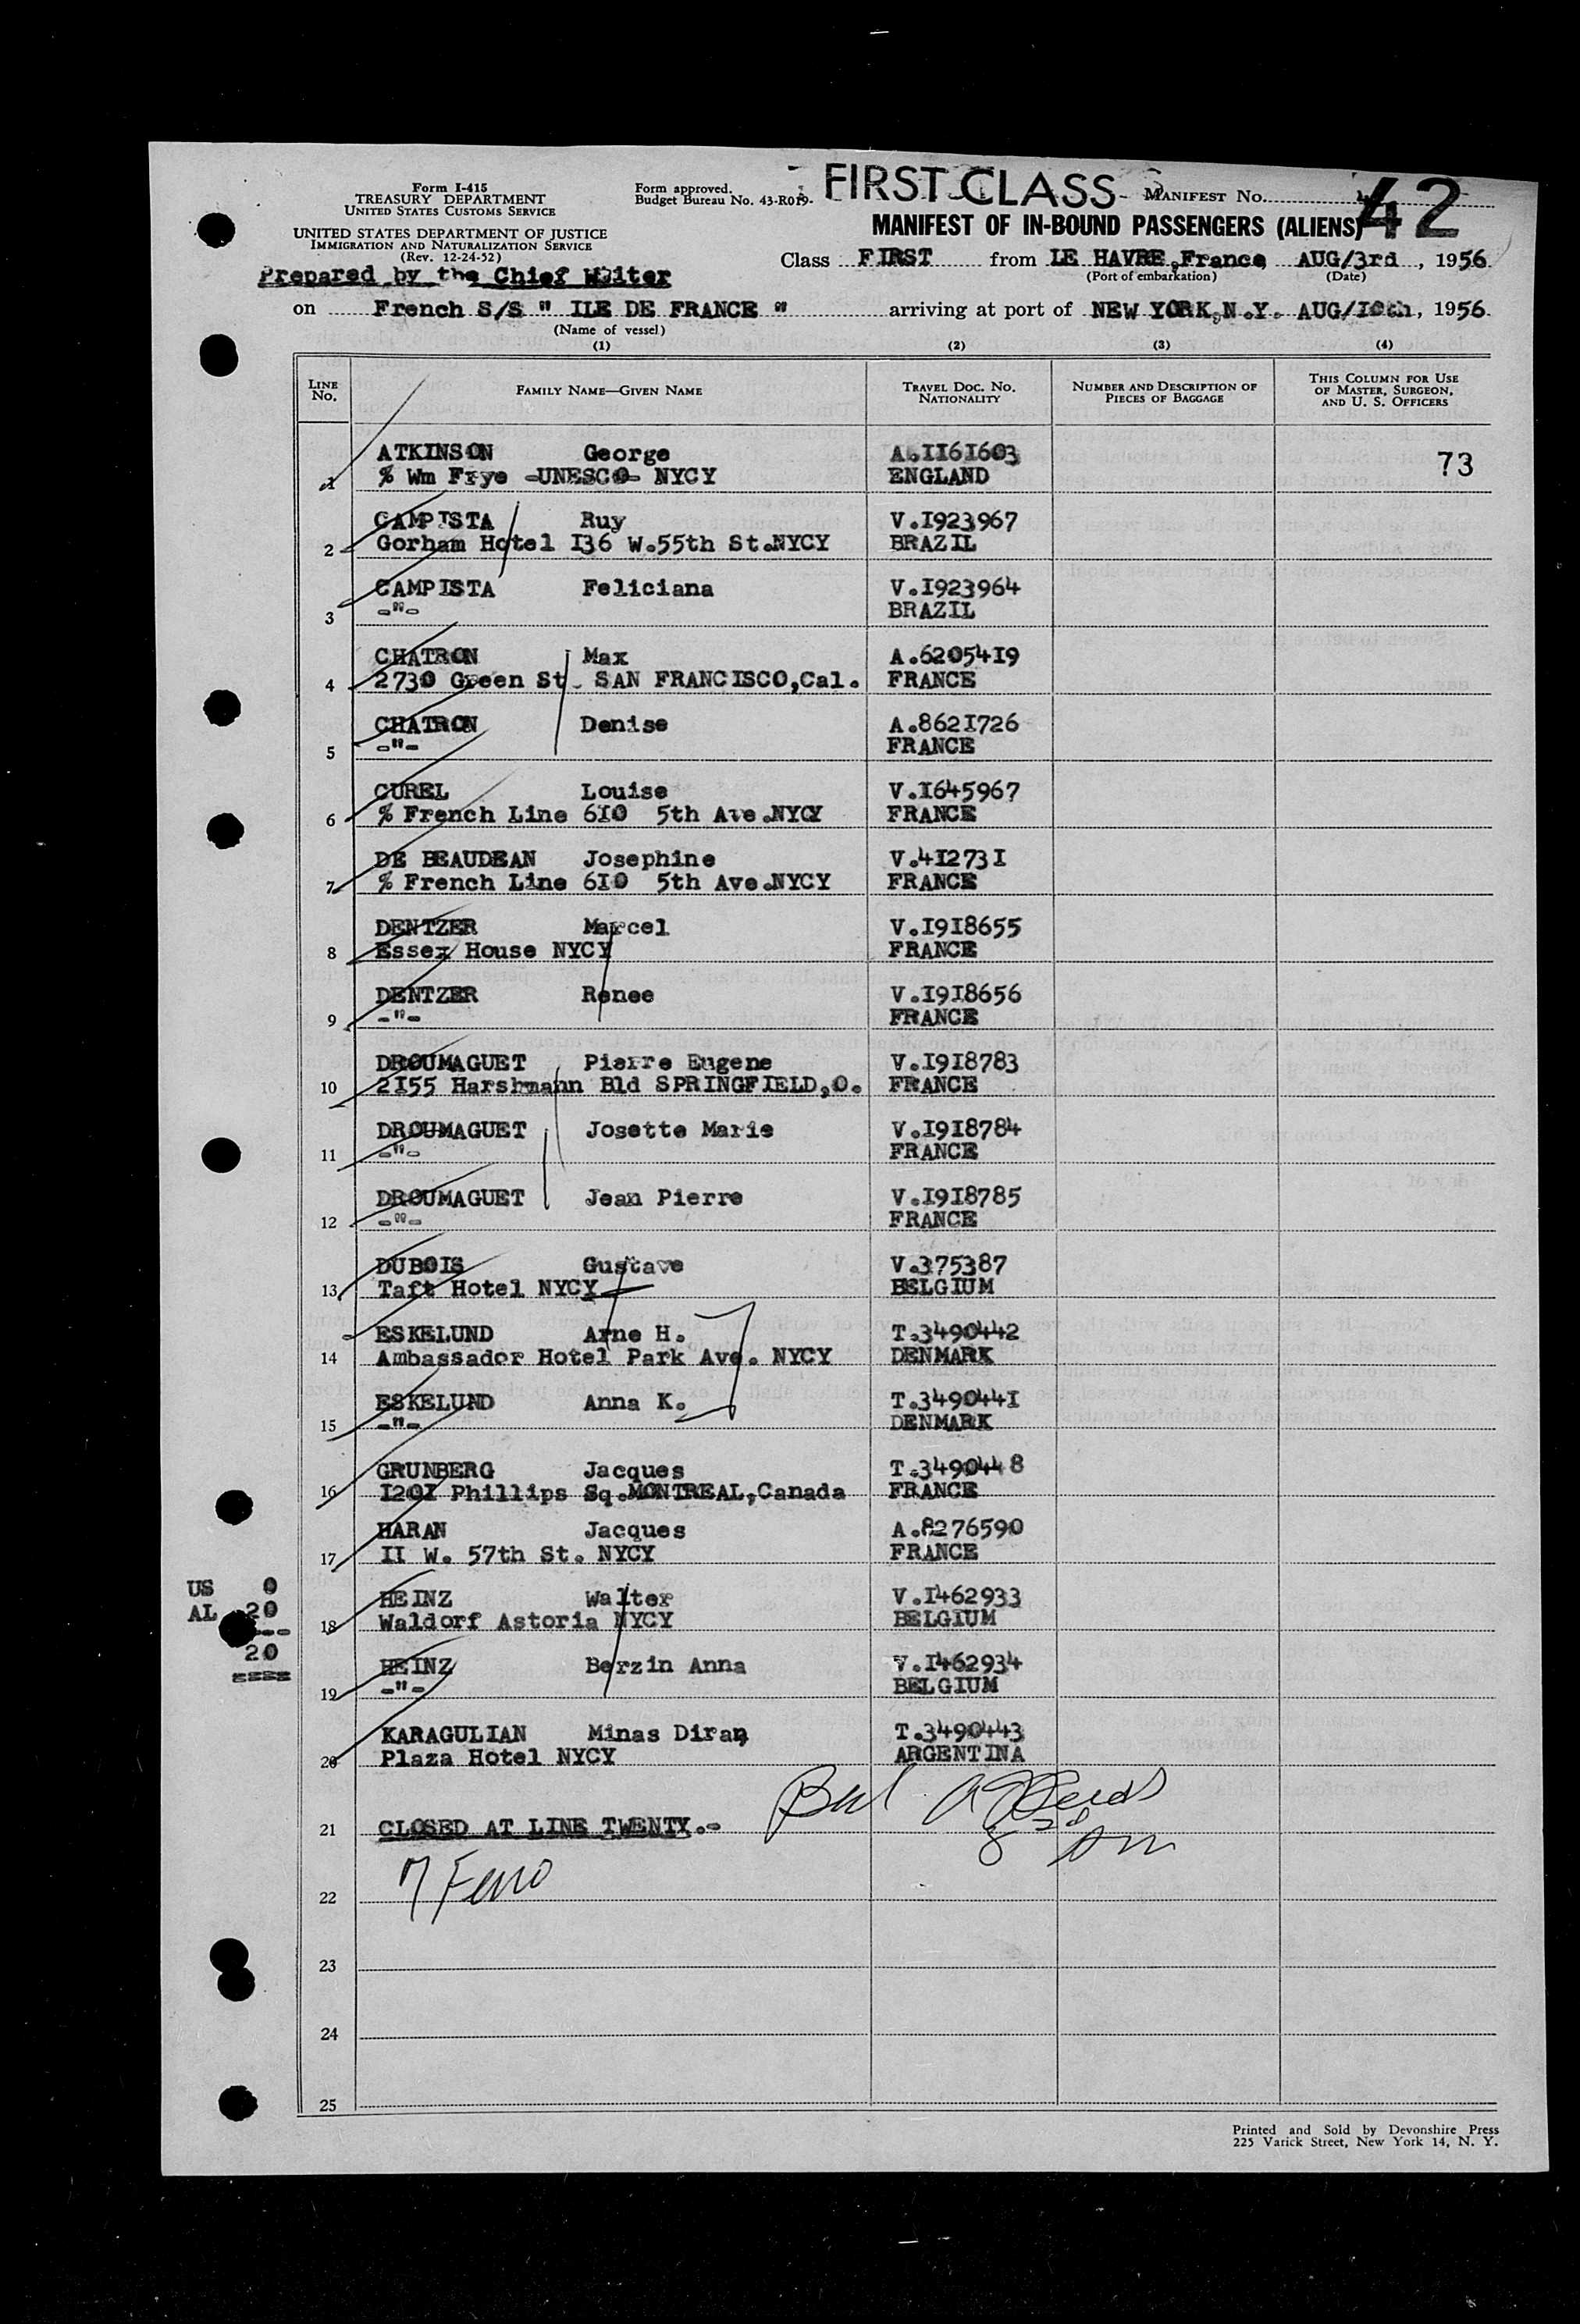 Form I-415
TREASURY DEPARTMENT
UNITED STATES CUSTOMS SERVICE
UNITED STATES DEPARTMENT OF JUSTICE
IMMIGRATION AND NATURALIZATION SERVICE
(Rev. 12-24-52)
Form approved.
Budget Bureau No. 43-R019-
FIRST CLASS
MANIFEST No.
42
MANIFEST OF IN-BOUND PASSENGERS (ALIENS)
Prepared by the Chief Writer
Class FIRST from LE HAVRE,France AUG/3rd , 1956
(Port of embarkation) (Date)
on French S/S " ILE DE FRANCE " arriving at port of NEW YORK,N.Y. AUG/I0th, 1956.
(Name of vessel)
(1) (2) (3) (4)
LINE No. FAMILY NAME—GIVEN NAME TRAVEL DOC. No. NATIONALITY NUMBER AND DESCRIPTION OF PIECES OF BAGGAGE THIS COLUMN FOR USE OF MASTER, SURGEON, AND U. S. OFFICERS
ATKINSON George A.II6I603
1 % Wm Frye -UNESCO- NYCY ENGLAND 73
CAMPISTA Ruy V.I923967
2 Gorham Hotel I36 W.55th St.NYCY BRAZIL
CAMPISTA Feliciana V.I923964
3 -"- BRAZIL
CHATRON Max A.62054I9
4 2730 Green St. SAN FRANCISCO,Cal. FRANCE
CHATRON Denise A.862I726
5 -"- FRANCE
CUREL Louise V.I645967
6 % French Line 6I0 5th Ave.NYCY FRANCE
DE BEAUDEAN Josephine V.4I273I
7 % French Line 6I0 5th Ave.NYCY FRANCE
DENTZER Marcel V.I9I8655
8 Essex House NYCY FRANCE
DENTZER Renee V.I9I8656
9 -"- FRANCE
DROUMAGUET Pierre Eugene V.I9I8783
10 2I55 Harshmann Bld SPRINGFIELD,O. FRANCE
DROUMAGUET Josette Marie V.I9I8784
11 -"- FRANCE
DROUMAGUET Jean Pierre V.I9I8785
12 -"- FRANCE
DUBOIS Gustave V.375387
13 Taft Hotel NYCY BELGIUM
ESKELUND Arne H. T.3490442
14 Ambassador Hotel Park Ave. NYCY DENMARK
ESKELUND Anna K. T.349044I
15 -"- DENMARK
GRUNBERG Jacques T.3490448
16 I20I Phillips Sq.MONTREAL,Canada FRANCE
HARAN Jacques A.8276590
17 II W. 57th St. NYCY FRANCE
US 0
AL 20
---
20
====
HEINZ Walter V.I462933
18 Waldorf Astoria NYCY BELGIUM
HEINZ Berzin Anna V.I462934
19 -"- BELGIUM
KARAGULIAN Minas Diran T.3490443
20 Plaza Hotel NYCY ARGENTINA
21 CLOSED AT LINE TWENTY.-
22
23
24
25
Printed and Sold by Devonshire Press
225 Varick Street, New York 14, N. Y.